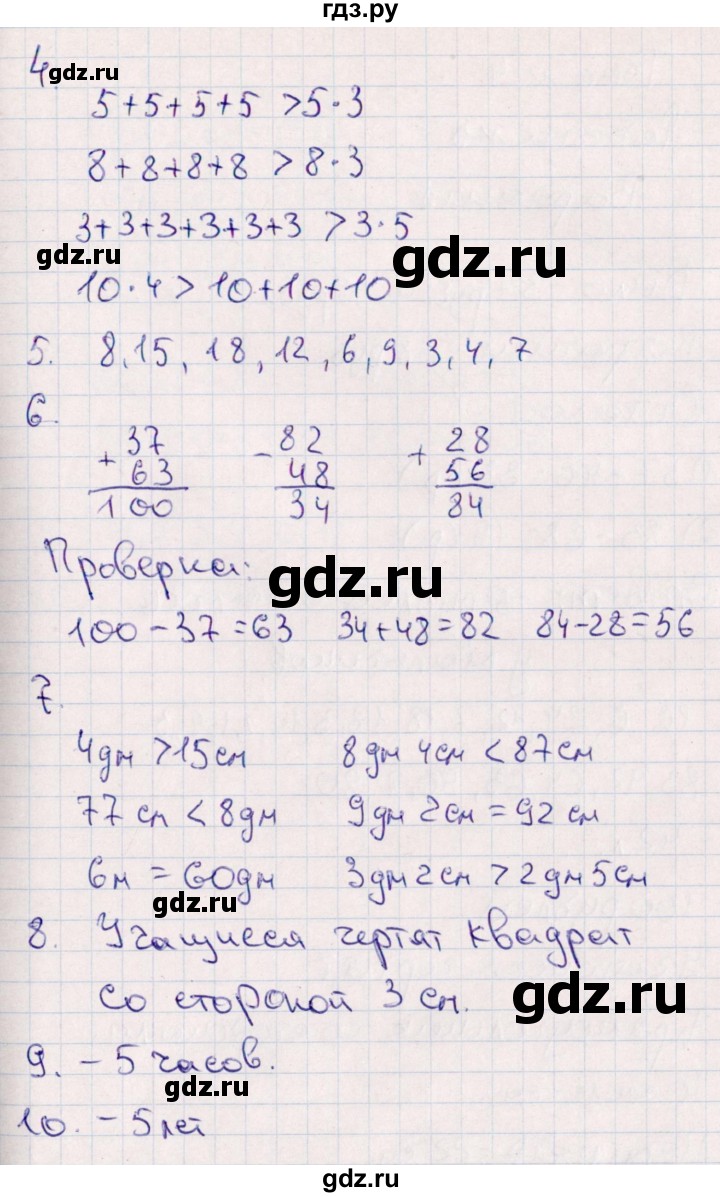 гдз.ру
4.
gdz.ru
5+5+5+5 >5·3
8+8+8+8 >8·3
3+3+3+3+3+3 >3·5
gdz.ru
gdz.ru
10·4>10+10+10
5. 8,15, 18, 12, 6, 9, 3, 4, 7
6.
+ 37 - 82 + 28
63 48 56
100 34 84
Проверка:
gdz.ru
100-37=63 34+48=82 84-28=56
7.
4дм >15см 8дм 4см <87см
77 см < 8дм 9дм 2см = 92 см
6м = 60дм 3дм2см >2дм5см
gdz.ru
8. Учащиеся чертят квадрат
со стороной 3 см.
gdz.ru
9. - 5 часов.
gdz.ru
10. - 5 лет
gdz.ru